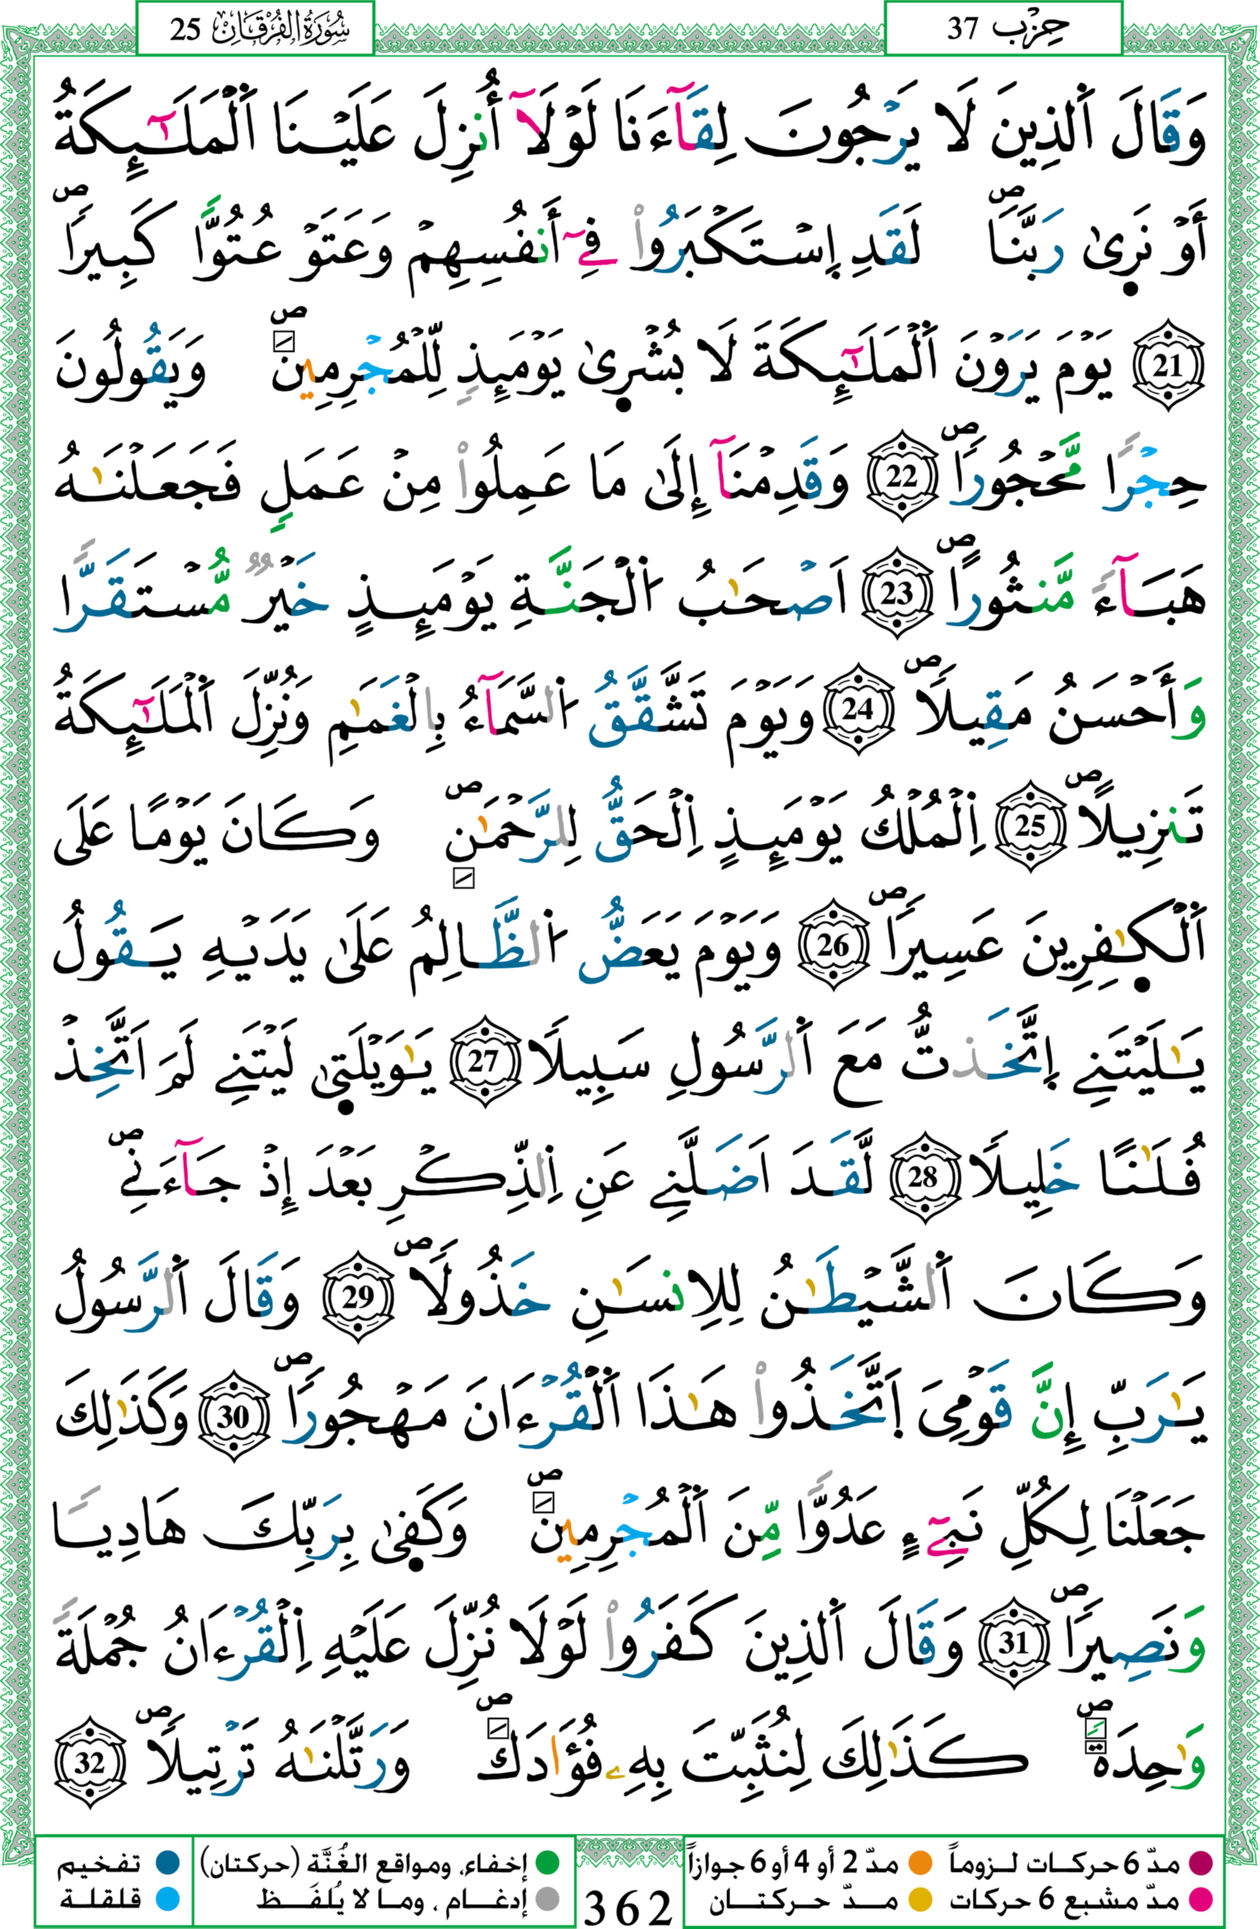 سُورَةُ الفُرْقَان 25
حِزْب 37
وَقَالَ اَ۬لذِينَ لَا يَرْجُونَ لِقَآءَنَا لَوْلَآ أُنزِلَ عَلَيْنَا اَ۬لْمَلَٰٓئِكَةُ
أَوْ نَر۪ىٰ رَبَّنَاۖ لَقَدِ اِ۪سْتَكْبَرُواْ فِےٓ أَنفُسِهِمْ وَعَتَوْ عُتُوّاٗ كَبِيراٗۖ
21 يَوْمَ يَرَوْنَ اَ۬لْمَلَٰٓئِكَةَ لَا بُشْر۪ىٰ يَوْمَئِذٖ لِّلْمُجْرِمِينَۖ وَيَقُولُونَ
حِجْراٗ مَّحْجُوراٗۖ 22 وَقَدِمْنَآ إِلَىٰ مَا عَمِلُواْ مِنْ عَمَلٖ فَجَعَلْنَٰهُ
هَبَآءٗ مَّنثُوراًۖ 23 اَصْحَٰبُ اُ۬لْجَنَّةِ يَوْمَئِذٍ خَيْرٞ مُّسْتَقَرّاٗ
وَأَحْسَنُ مَقِيلاٗۖ 24 وَيَوْمَ تَشَّقَّقُ اُ۬لسَّمَآءُ بِالْغَمَٰمِ وَنُزِّلَ اَ۬لْمَلَٰٓئِكَةُ
تَنزِيلاًۖ 25 اِ۬لْمُلْكُ يَوْمَئِذٍ اِ۬لْحَقُّ لِلرَّحْمَٰنِۖ وَكَانَ يَوْماً عَلَى
اَ۬لْكٰ۪فِرِينَ عَسِيراٗۖ 26 وَيَوْمَ يَعَضُّ اُ۬لظَّالِمُ عَلَىٰ يَدَيْهِ يَقُولُ
يَٰلَيْتَنِے اِ۪تَّخَذتُّ مَعَ اَ۬لرَّسُولِ سَبِيلاٗ 27 يَٰوَيْلَت۪ىٰ لَيْتَنِے لَمَ اَتَّخِذْ
فُلَٰناً خَلِيلاٗ 28 لَّقَدَ اَضَلَّنِے عَنِ اِ۬لذِّكْرِ بَعْدَ إِذْ جَآءَنِےۖ
وَكَانَ اَ۬لشَّيْطَٰنُ لِلِانسَٰنِ خَذُولاٗۖ 29 وَقَالَ اَ۬لرَّسُولُ
يَٰرَبِّ إِنَّ قَوْمِيَ اَ۪تَّخَذُواْ هَٰذَا اَ۬لْقُرْءَانَ مَهْجُوراٗۖ 30 وَكَذَٰلِكَ
جَعَلْنَا لِكُلِّ نَبِےٓءٍ عَدُوّاٗ مِّنَ اَ۬لْمُجْرِمِينَۖ وَكَف۪ىٰ بِرَبِّكَ هَادِياٗ
وَنَصِيراٗۖ 31 وَقَالَ اَ۬لذِينَ كَفَرُواْ لَوْلَا نُزِّلَ عَلَيْهِ اِ۬لْقُرْءَانُ جُمْلَةٗ
وَٰحِدَةٗۖ كَذَٰلِكَ لِنُثَبِّتَ بِهِۦ فُؤَادَكَۖ وَرَتَّلْنَٰهُ تَرْتِيلاٗۖ 32
مدّ 6 حركات لزوماً مدّ 2 أو 4 أو 6 جوازاً إخفاء، ومواقع الغُنَّة (حركتان) تفخيم
مدّ مشبع 6 حركات مدّ حركتان إدغام ، وما لا يُلفَظ قلقلة
362